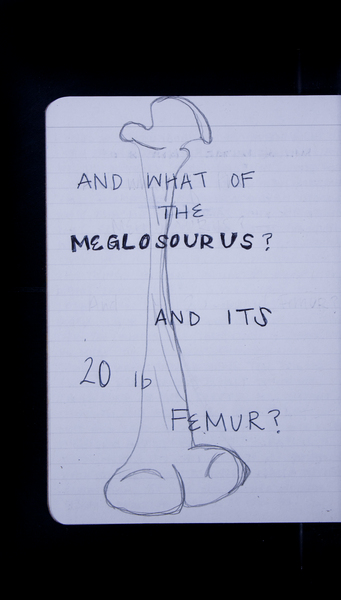 AND WHAT OF
THE
MEGLOSOURUS?
AND ITS
20 lb
FEMUR?